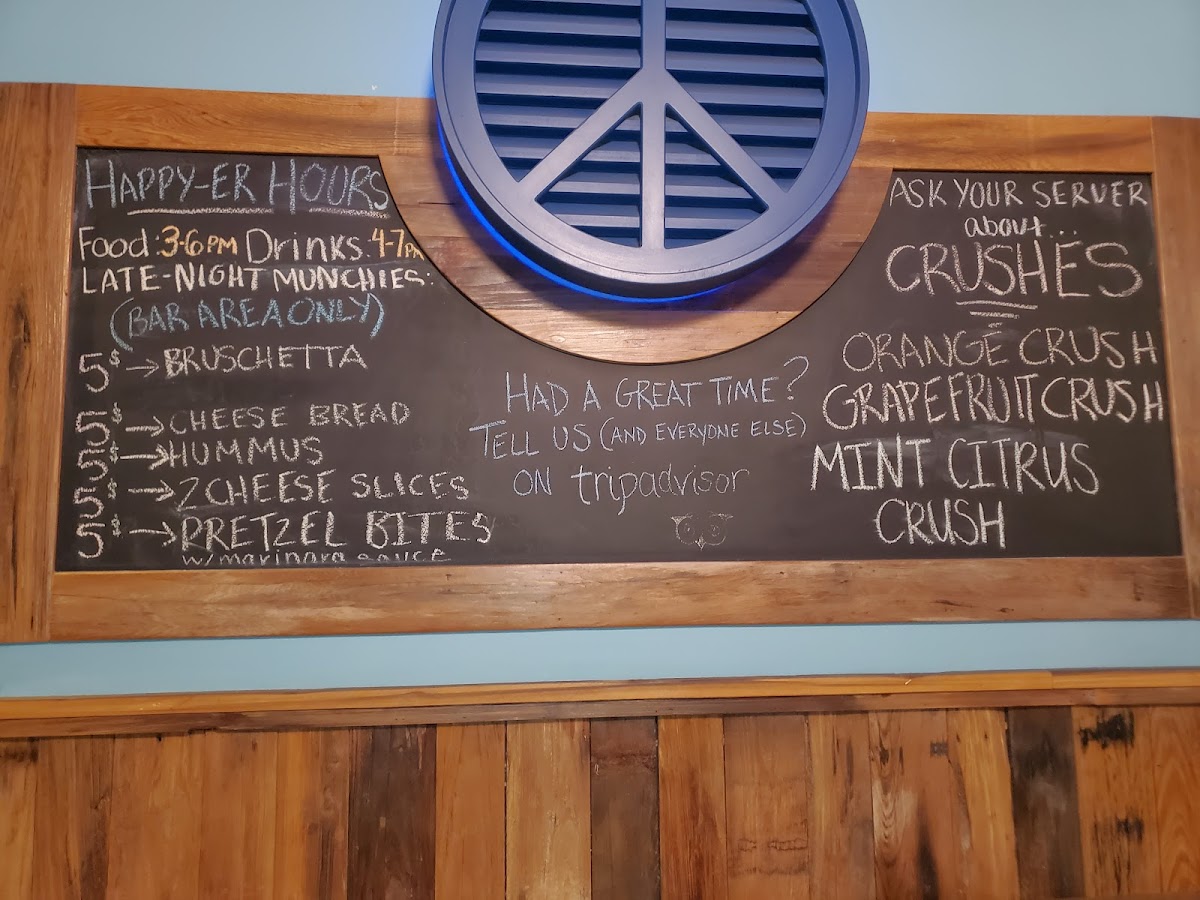 HAPPY-ER HOURS
Food: 3-6PM Drinks: 4-7PM
LATE-NIGHT MUNCHIES:
(BAR AREA ONLY)
5$ → BRUSCHETTA
5$ → CHEESE BREAD
5$ → HUMMUS
5$ → 2 CHEESE SLICES
5$ → PRETZEL BITES
w/marinara sauce
HAD A GREAT TIME?
TELL US (AND EVERYONE ELSE)
ON tripadvisor
ASK YOUR SERVER
about...
CRUSHES
ORANGE CRUSH
GRAPEFRUIT CRUSH
MINT CITRUS
CRUSH